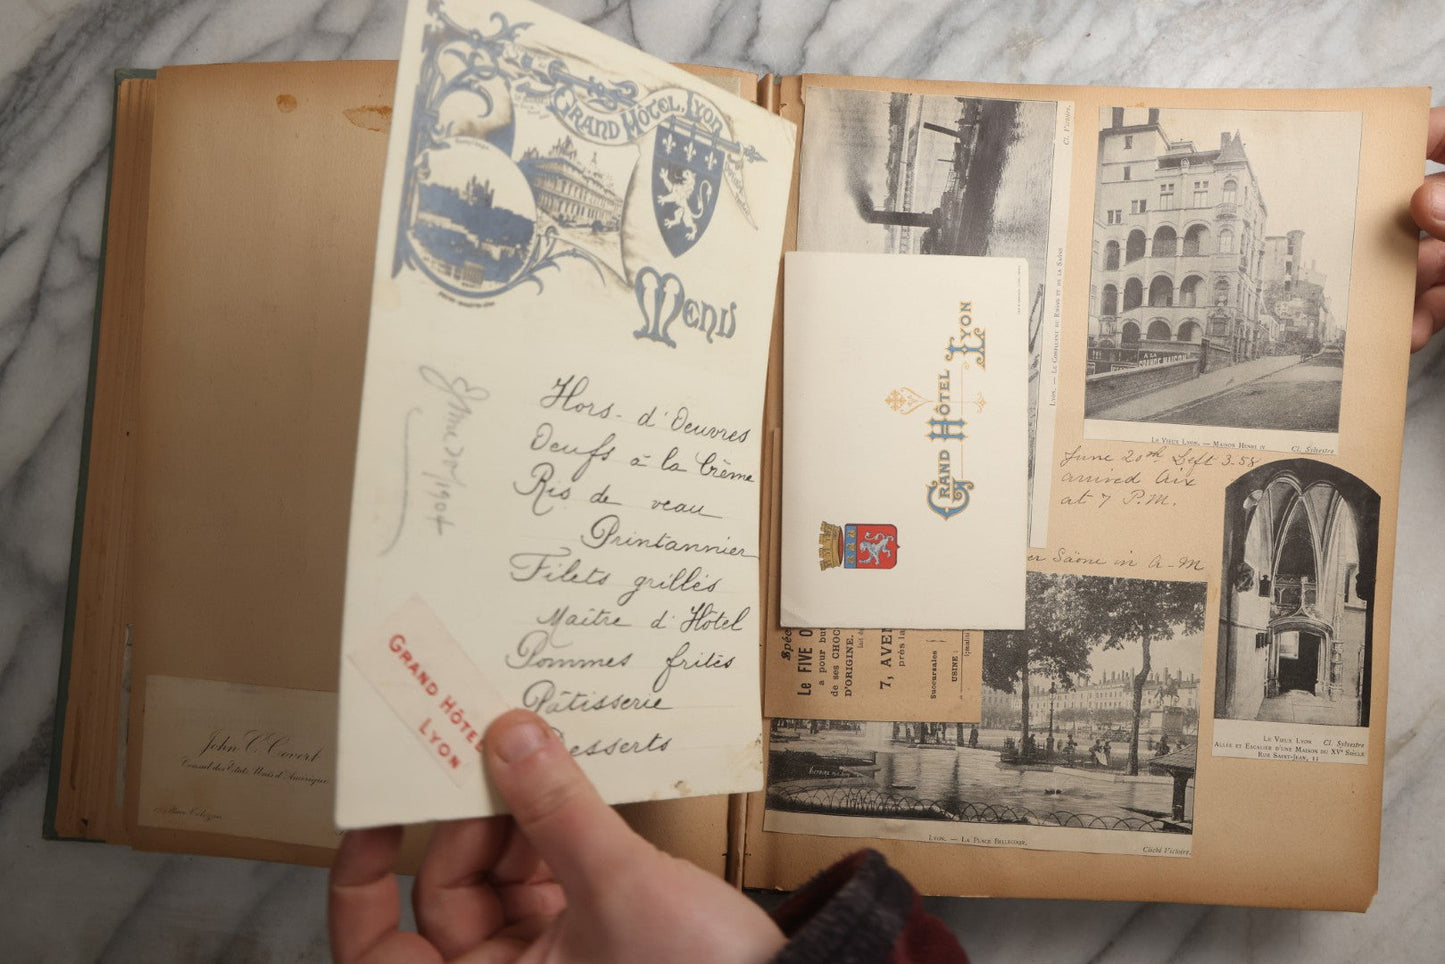 Grand Hôtel, Lyon
Menu
June 20/1904
Hors-d'Oeuvres
Oeufs à la Crème
Ris de veau
Printannier
Filets grillés
Maître d'Hôtel
Pommes frites
Pâtisserie
Desserts
GRAND HÔTEL
LYON
John C. Covert
Consul des États Unis d'Amérique
GRAND HÔTEL LYON
Cl. Victoire.
LYON. — LE CONFLUENT DU RHÔNE ET DE LA SAÔNE
A LA
GRANDE MAISON
LE VIEUX LYON. — MAISON HENRI IV
Cl. Sylvestre
June 20th Left 3.58
arrived Aix
at 7 P.M.
Saône in A-M
Le FIVE O
a pour but
de ses CHOC
D'ORIGINE.
7, AVEN
près la
Succursales
USINE :
LYON. — LA PLACE BELLECOUR
Cliché Victoire.
LE VIEUX LYON Cl. Sylvestre
ALLÉE ET ESCALIER D'UNE MAISON DU XVe SIÈCLE
RUE SAINT-JEAN, 11